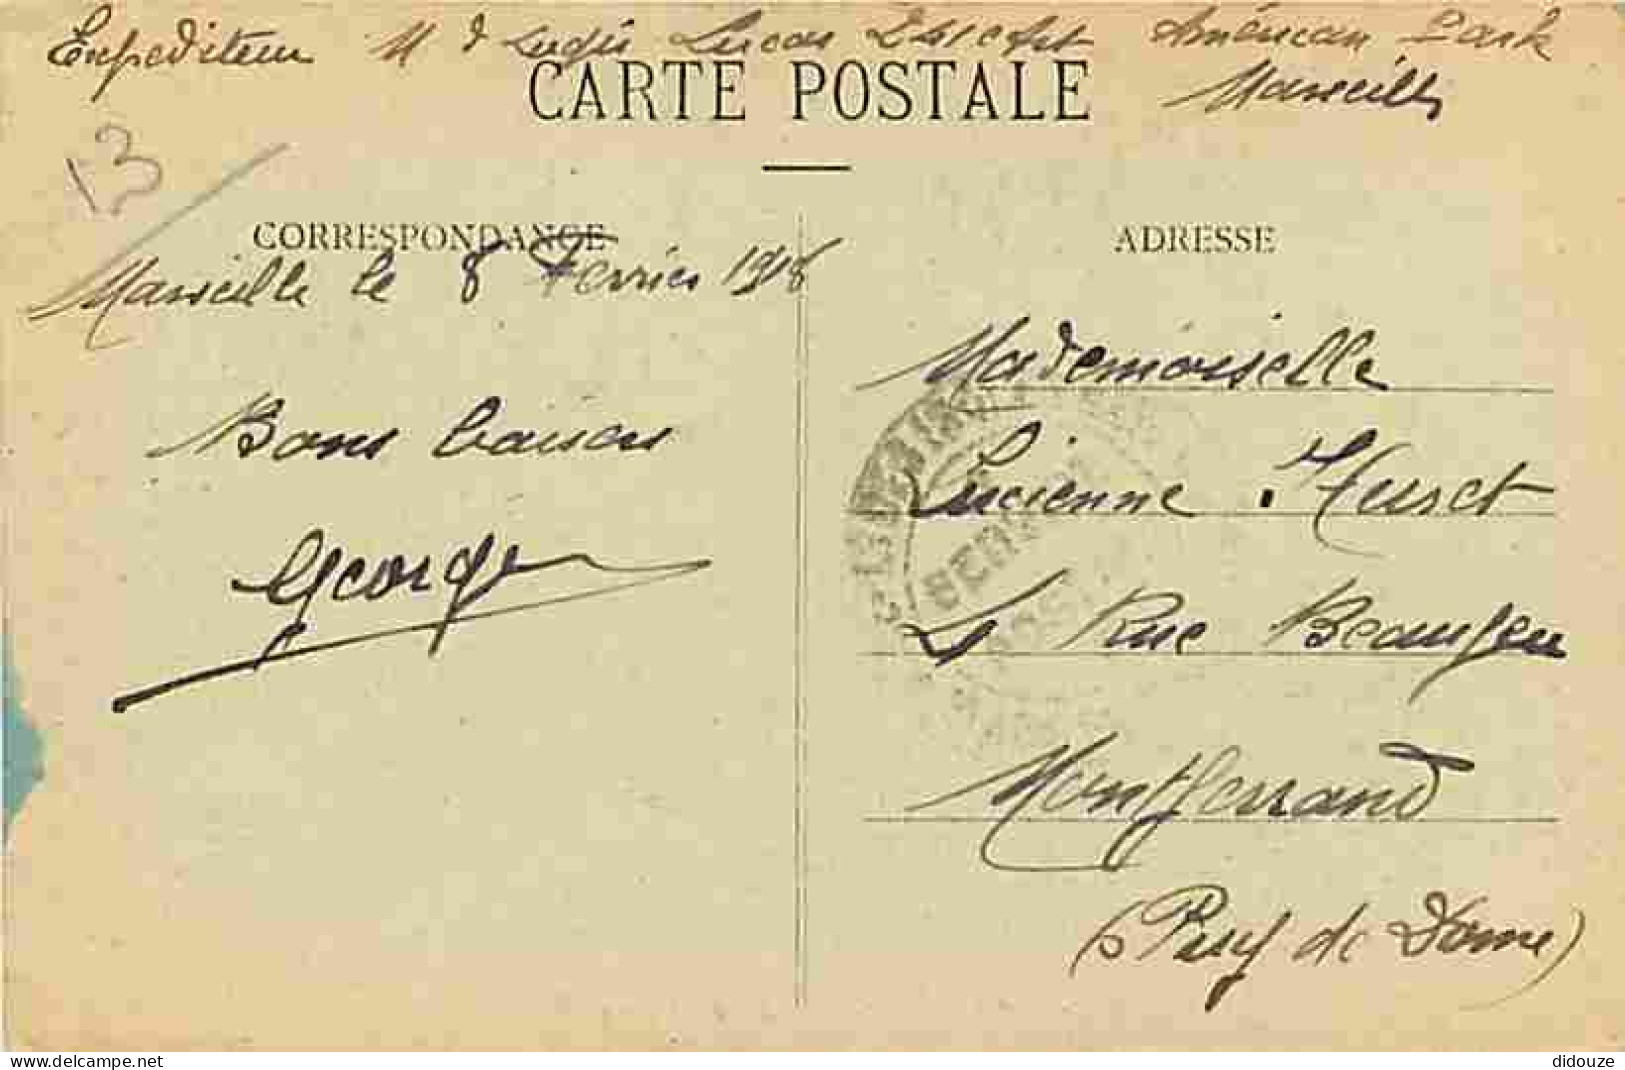 Expediteur M d Lucas American Park
Marseille
CARTE POSTALE
13
CORRESPONDANCE
Marseille le 8 Fevrier 1918
Bons baisers
Georges
ADRESSE
Mademoiselle
Lucienne
Rue Beaujeu
Montferrand
(Puy de Dome)
didouze